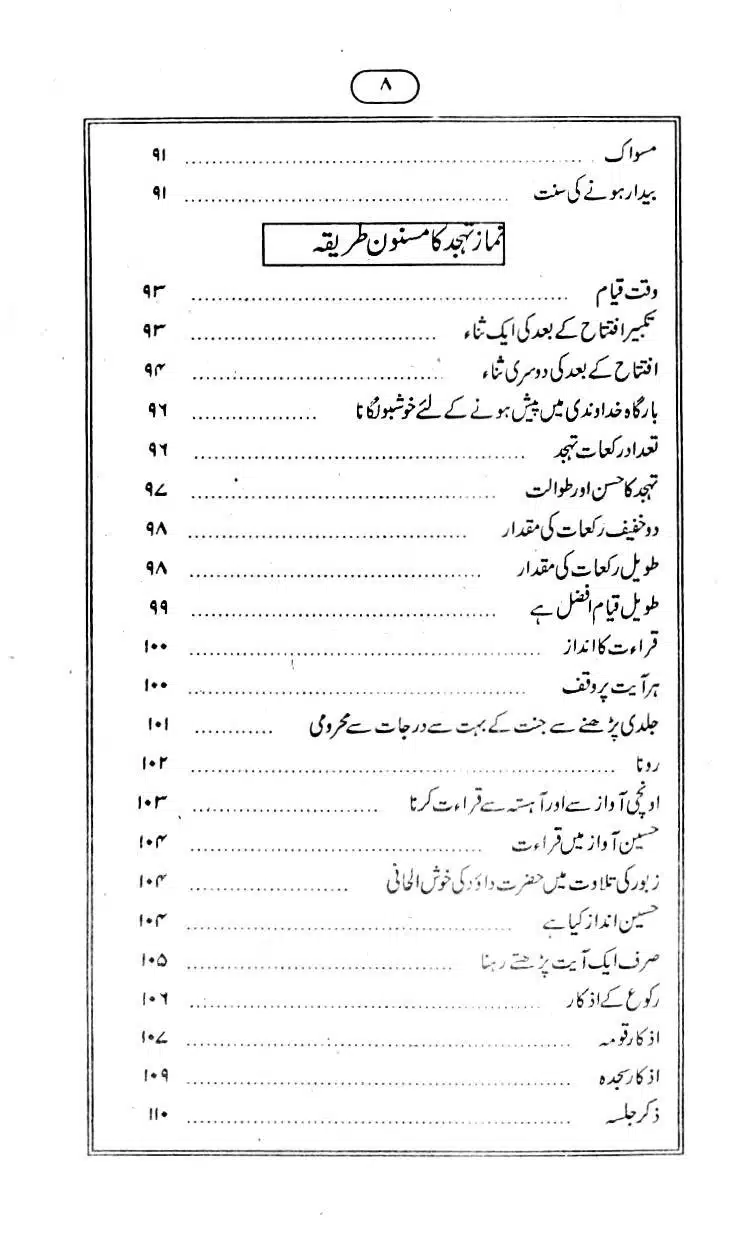 ۸
مسواک ........................ ۹۱
بیدار ہونے کی سنت ........................ ۹۱
نماز تہجد کا مسنون طریقہ
وقت قیام ........................ ۹۳
تکبیر افتتاح کے بعد کی ایک ثناء ........................ ۹۳
افتتاح کے بعد کی دوسری ثناء ........................ ۹۴
بارگاہ خداوندی میں پیش ہونے کے لئے خوشبو لگانا ........................ ۹۶
تعداد رکعات تہجد ........................ ۹۶
تہجد کا حسن اور طوالت ........................ ۹۷
دو خفیف رکعات کی مقدار ........................ ۹۸
طویل رکعات کی مقدار ........................ ۹۸
طویل قیام افضل ہے ........................ ۹۹
قراءت کا انداز ........................ ۱۰۰
ہر آیت پر وقف ........................ ۱۰۰
جلدی پڑھنے سے جنت کے بہت سے درجات سے محرومی ............ ۱۰۱
رونا ........................ ۱۰۲
اونچی آواز سے اور آہستہ سے قراءت کرنا ........................ ۱۰۳
حسین آواز میں قراءت ........................ ۱۰۴
زبور کی تلاوت میں حضرت داؤد کی خوش الحانی ........................ ۱۰۴
حسین انداز کیا ہے ........................ ۱۰۴
صرف ایک آیت پڑھتے رہنا ........................ ۱۰۵
رکوع کے اذکار ........................ ۱۰۶
اذکار قومہ ........................ ۱۰۷
اذکار سجدہ ........................ ۱۰۹
ذکر جلسہ ........................ ۱۱۰